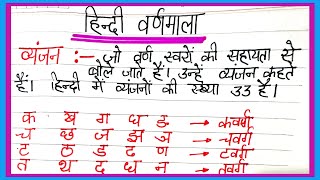 हिन्दी वर्णमाला
व्यंजन :— जो वर्ण स्वरों की सहायता से
बोले जाते हैं। उन्हें व्यंजन कहते
हैं। हिन्दी में व्यंजनों की संख्या 33 है।
क ख ग घ ङ → कवर्ग
च छ ज झ ञ → चवर्ग
ट ठ ड ढ ण → टवर्ग
त थ द ध न → तवर्ग